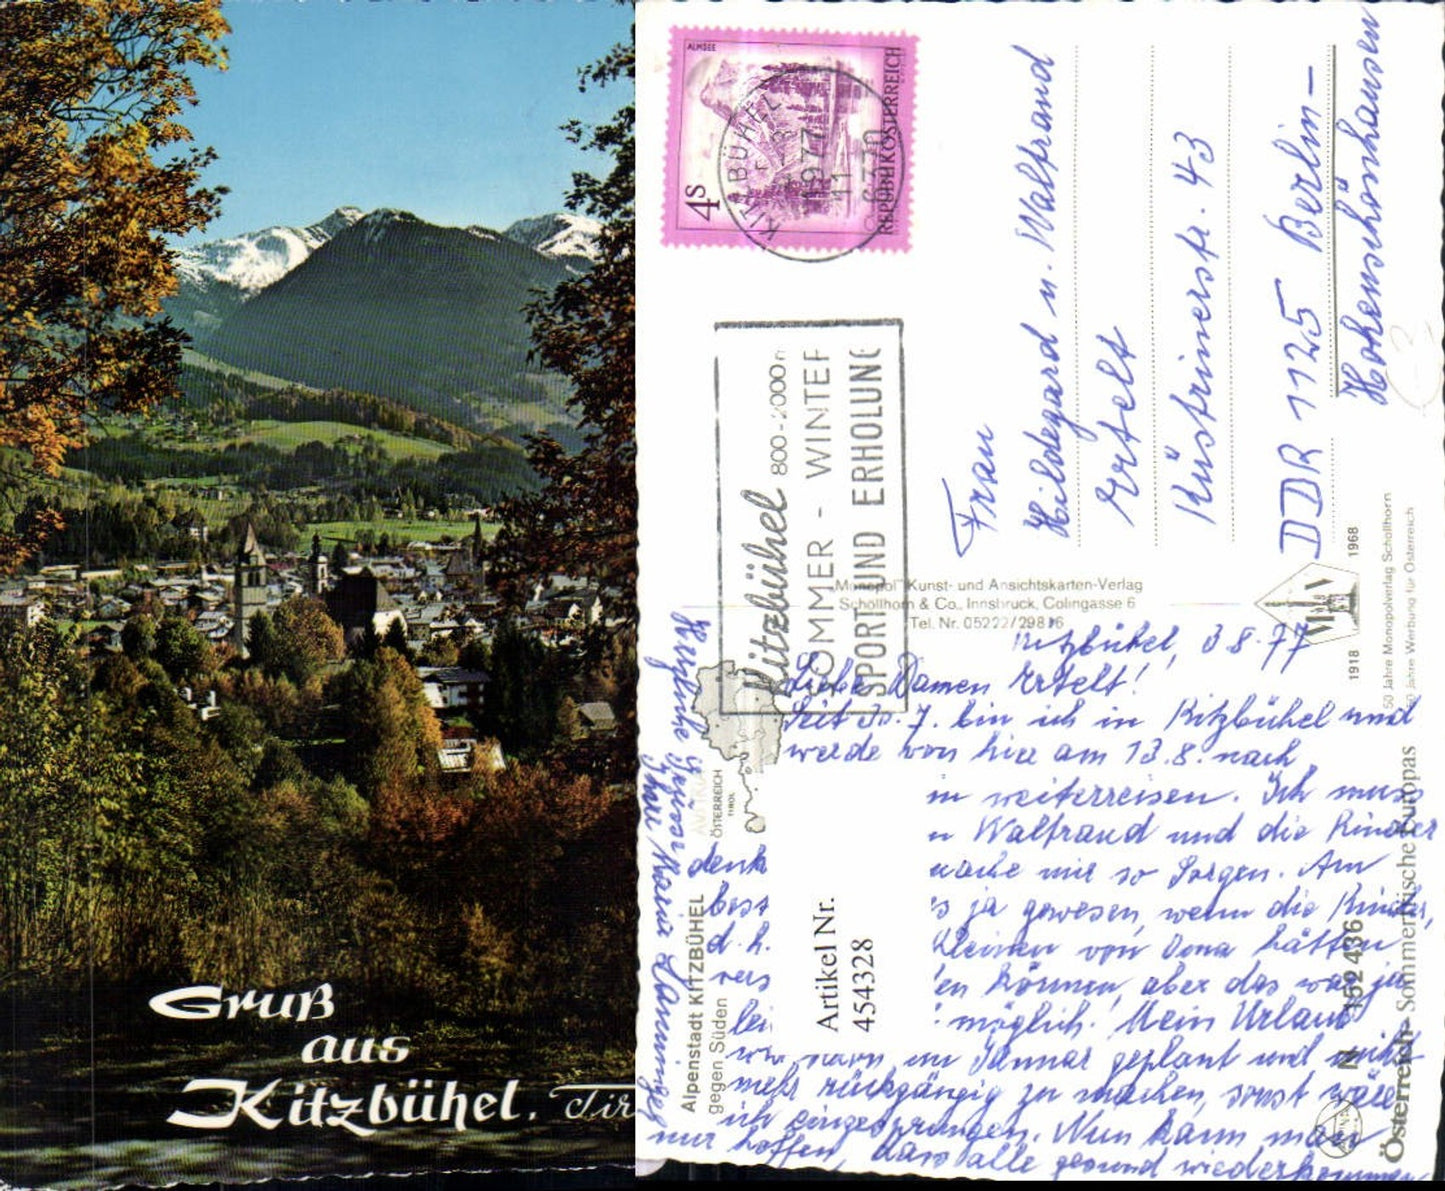 Gruß
aus
Kitzbühel, Tir
ALMSEE
4S
REPUBLIK ÖSTERREICH
KITZBÜHEL
1977
11
6370
Kitzbühel 800-2000
SOMMER - WINTER
SPORT UND ERHOLUNG
Frau
Hildegard u. Waltraud
Ertelt
Küstrinerstr. 43
DDR 1125 Berlin-
Hohenschönhausen
„Monopol" Kunst- und Ansichtskarten-Verlag
Schöllhorn & Co., Innsbruck, Colingasse 6
Tel. Nr. 05222/29816
1918 1968
50 Jahre Monopolverlag Schöllhorn
50 Jahre Werbung für Österreich
Österreich - Sommerfrische Europas
N 152436
ÖSTERREICH
TIROL
Alpenstadt KITZBÜHEL
gegen Süden
Artikel Nr.
454328
Kitzbühel, 3.8.77
Liebe Damen Ertelt!
Seit 30.7. bin ich in Kitzbühel und
werde von hier am 13.8. nach
in weiterreisen. Ich muss
denk n Waltraud und die Kinder
mache mir so Sorgen. Am
best s ja gewesen, wenn die Kinder,
d.h. Kleinen von Oma hätten
vers en können, aber das war ja
lei möglich. Mein Urlaub
war im Januar geplant und nicht
mehr rückgängig zu machen, sonst wäre
ich eingesprungen. Nun kann man
nur hoffen, dass alle gesund wiederkommen
Herzliche Grüsse
Ihre Maria